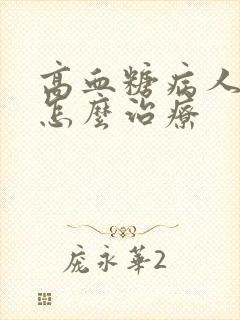 高血糖病人
怎麼治療
庞永華2